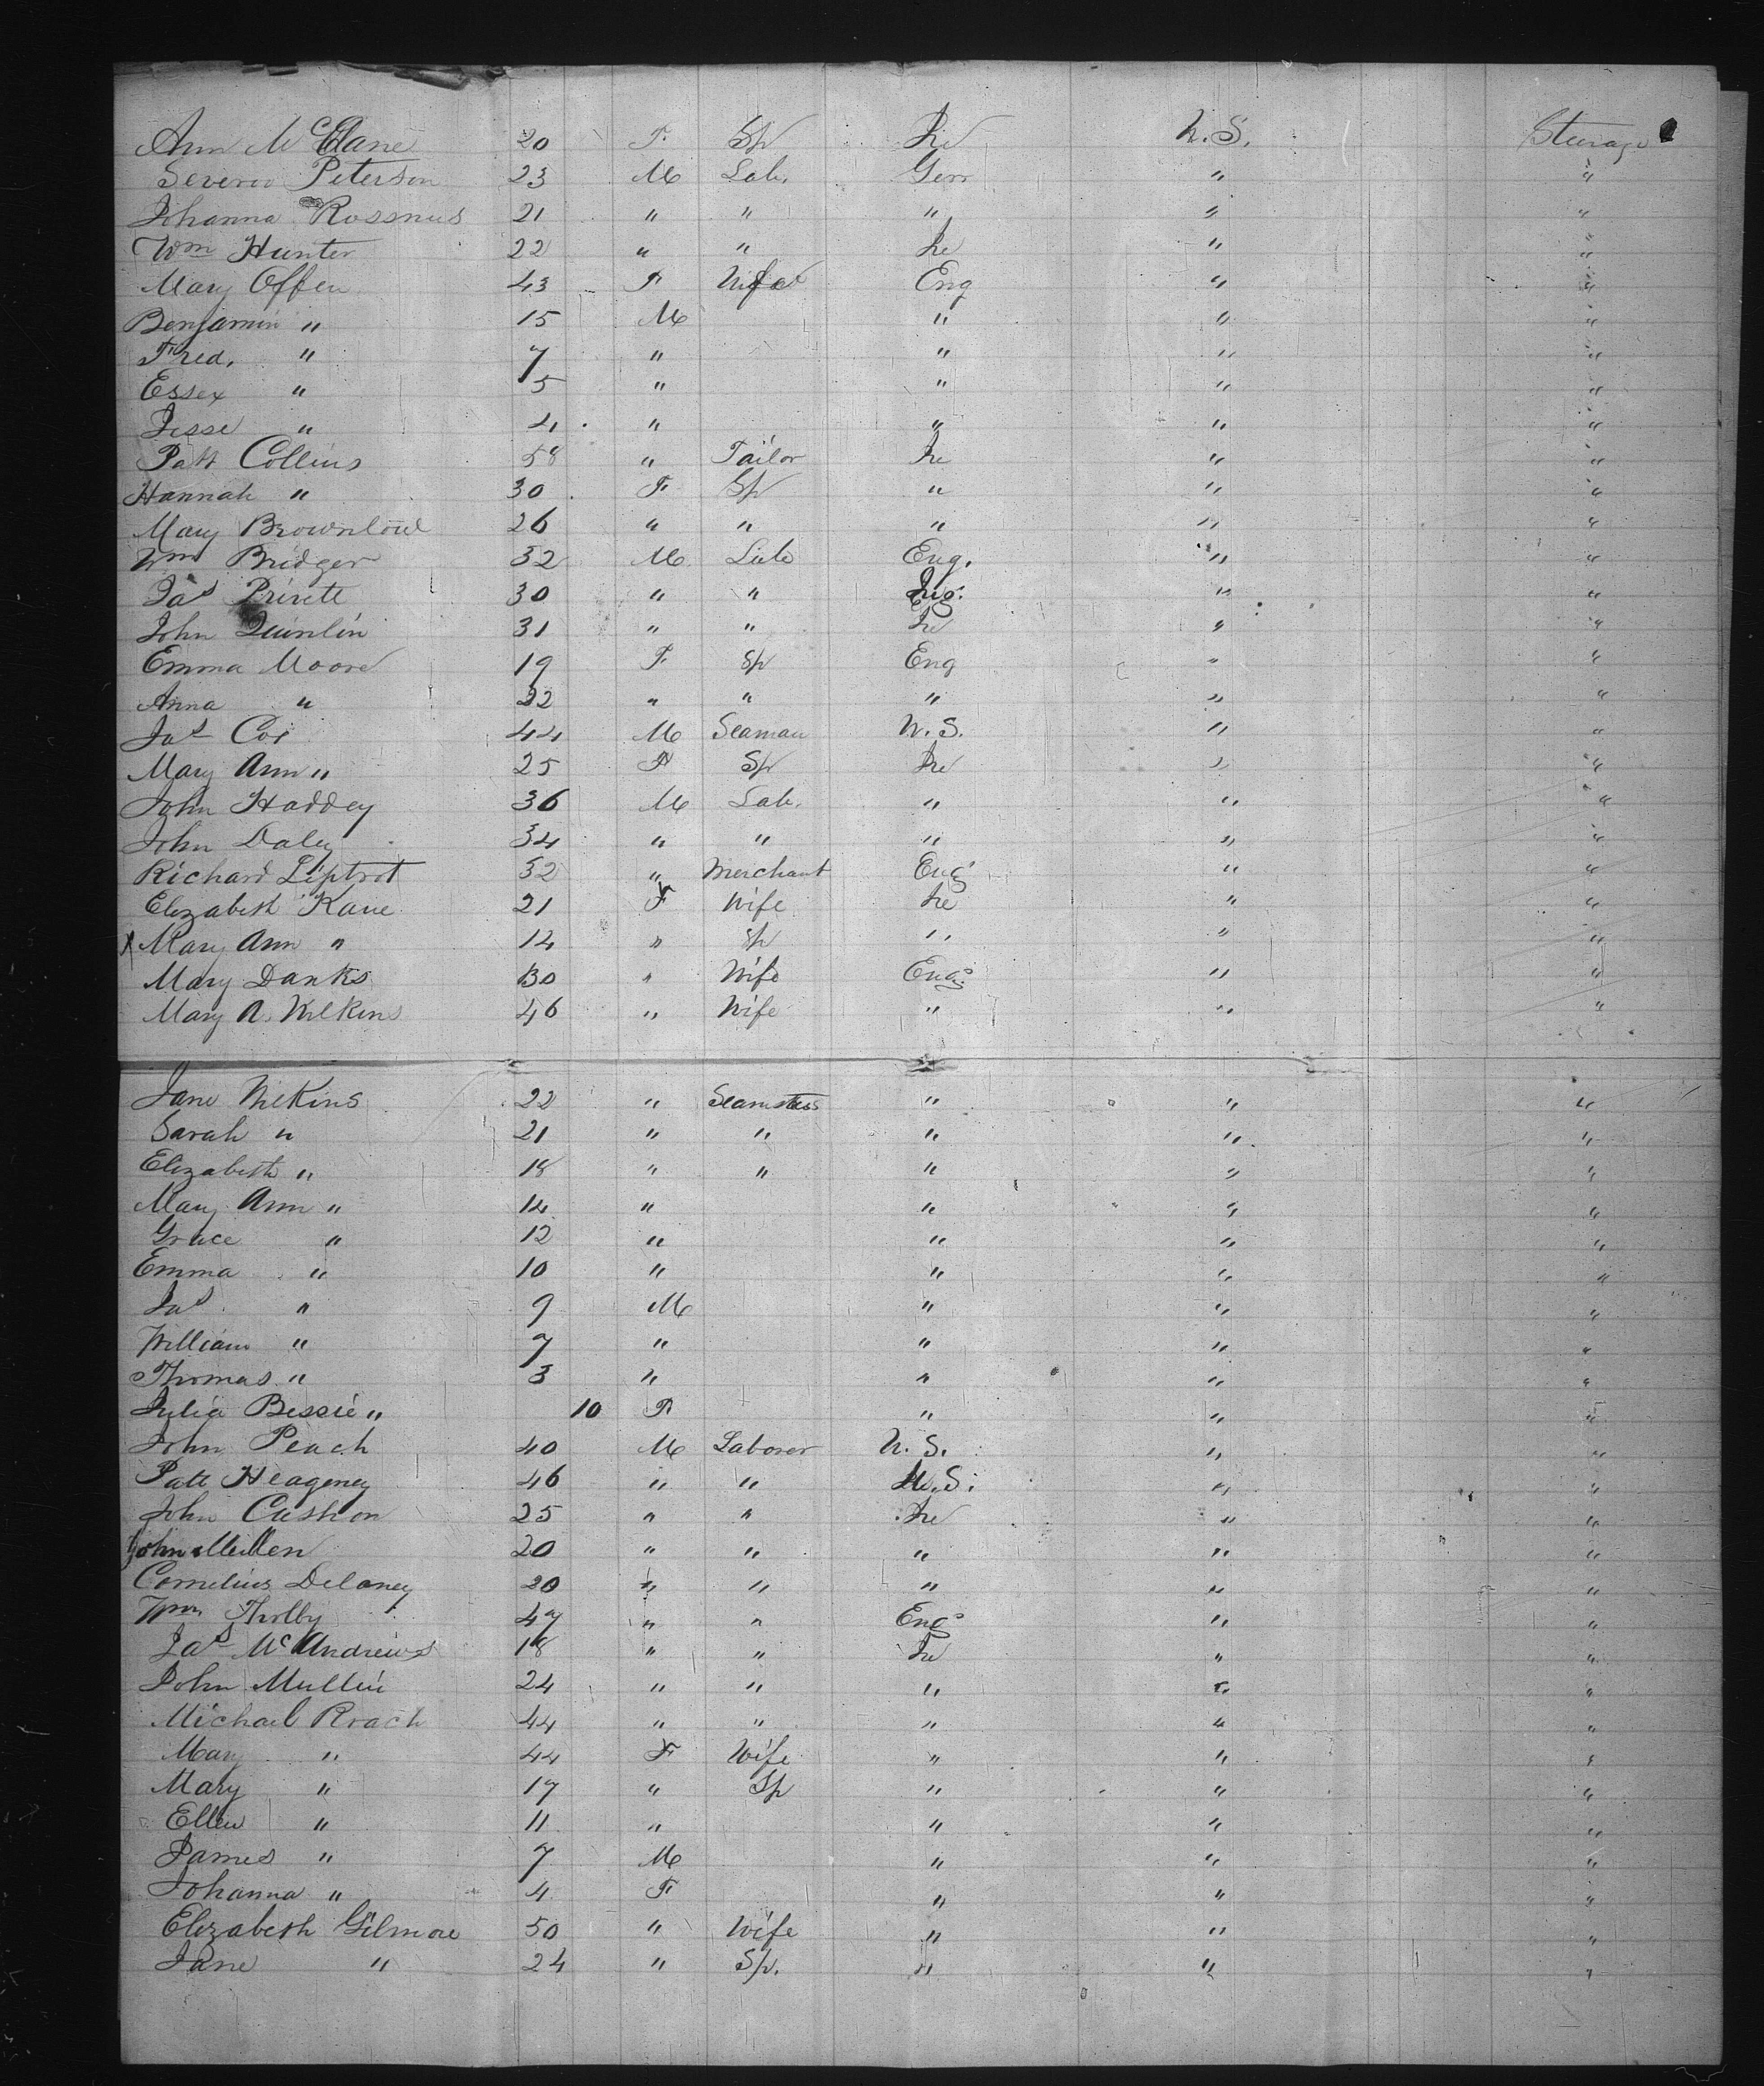 Ann McClane 20 F. Sp Ire U.S. Steerage
Severin Peterson 23 M Lab. Gerr " "
Johanna Rossnus 21 " " " " "
Wm Hunter 22 " " Ire " "
Mary Offen 43 F Wife Eng " "
Benjamin " 15 M " " "
Fred. " 7 " " " "
Essex " 5 " " " "
Jesse " 4 " " " "
Patt Collins 58 " Tailor Ire " "
Hannah " 30 F Sp " " "
Mary Brownlow 26 " " " " "
Wm Bridger 32 M Lab Eng. " "
Jas 30 " " Eng. " "
John Quinlin 31 " " Ire " "
Emma Moore 19 F. Sp Eng " "
Anna " 22 " " " " "
Jas Cox 44 M Seaman U.S. " "
Mary Ann " 25 F Sp Ire " "
John Haddey 36 M Lab. " " "
John Daley 34 " " " " "
Richard Liptrot 32 " Merchant Eng " "
Elizabeth Kane 21 F Wife Ire " "
x Mary Ann " 14 " Sp " " "
Mary Danks 30 " Wife Eng. " "
Mary A. Wilkins 46 " Wife " " "
Jane Wilkins 22 " Seamstess " " "
Sarah " 21 " " " " "
Elizabeth " 18 " " " " "
Mary Ann " 14 " " " "
Grace " 12 " " " "
Emma " 10 " " " "
Jas " 9 M " " "
William " 7 " " " "
Thomas " 3 " " " "
Julia Bessie " 10 F " " "
John Peach 40 M Laborer U.S. " "
Patt Heageney 46 " " U.S. " "
John Cashon 25 " " Ire " "
John Mullen 20 " " " " "
Cornelius Delaney 20 " " " " "
Wm Tholby 47 " " Eng " "
Jas McAndrews 18 " " Ire " "
John Mullin 24 " " " " "
Michael Roach 44 " " " " "
Mary " 44 F Wife " " "
Mary " 17 " Sp " " "
Ellen " 11 " " " "
James " 7 M " " "
Johanna " 4 F " " "
Elizabeth Gilmore 50 " Wife " " "
Jane " 24 " Sp. " " "